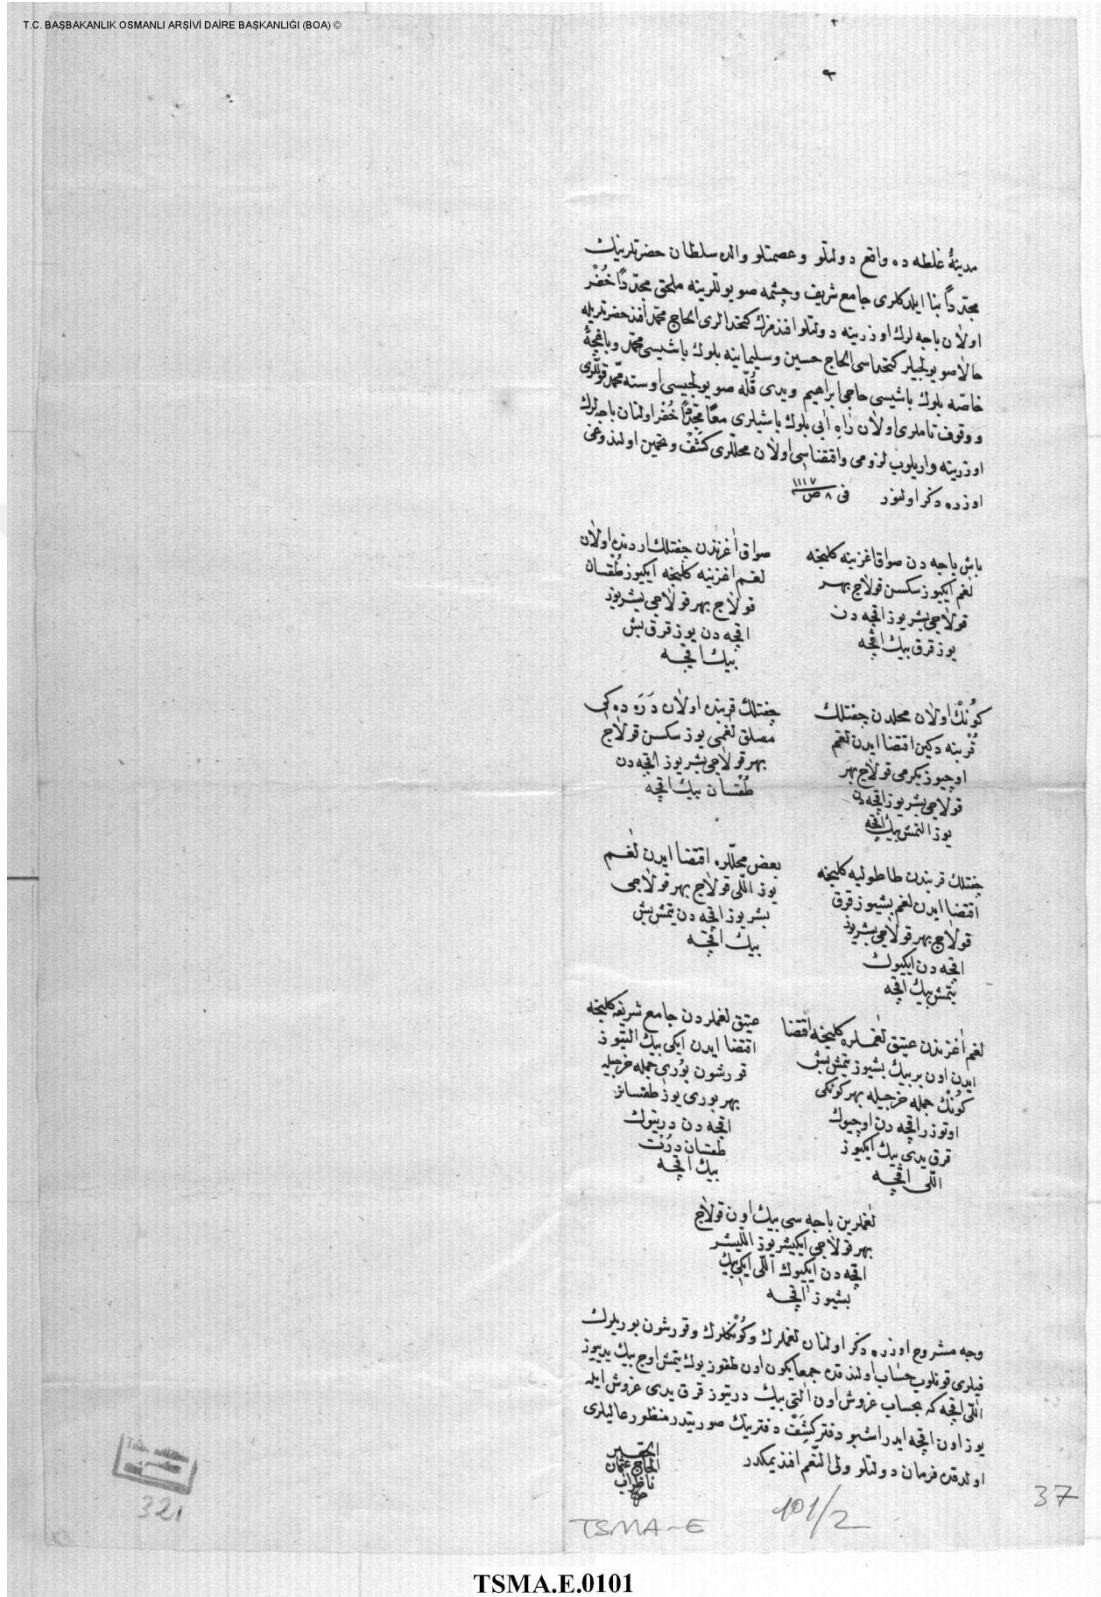 T.C. BAŞBAKANLIK OSMANLI ARŞİVİ DAİRE BAŞKANLIĞI (BOA) ©
مدینۀ غلطه ده واقع دولتلو وعصمتلو والده سلطان حضرتلرینك
مجدداً بنا ایلدكلری جامع شریف وچشمه صویوللرینه ملحق مجدداً حُفْر
اولان باجه لرك اوزرینه دولتلو افندمزك كتخدالری الحاج محمد افندی حضرتلریله
حالا صویولجیلر كتخداسی الحاج حسین وسلیمانیه بلوك باشیسی محمد وباغچۀ
خاصّه بلوك باشیسی حاجی ابراهیم ویدی قُلّه صویولجیسی اوسته محمد قوللری
ووقوف تاملری اولان راه ابی بلوك باشیلری معاً مجدداً حُفْر اولنان باجه لرك
اوزرینه واریلوب لزومی واقتضاسی اولان محللری كَشْف وتخمین اولندوغی
اوزره ذكر اولنور فی ٨ ص ١١١٧
باش باجه دن صواق اغزینه كلینجه
لغم ایكیوز سكسن قولاج بهر
قولاجی بشریوز اقچه دن
یوز قرق بیك اقچه
صواق اغزندن چفتلك اردنده اولان
لغم اغزینه كلینجه ایكیوز طقسان
قولاج بهر قولاجی بشریوز
اقچه دن یوز قرق بش
بیك اقچه
كُونْك اولان محلدن چفتلك
قُرْبنه دكین اقتضا ایدن لغم
اوچیوز یكرمی قولاج بهر
قولاجی بشریوز اقچه دن
یوز التمش بیك اقچه
چفتلك قربنده اولان دَرَه ده كی
مصلق لغمی یوز سكسن قولاج
بهر قولاجی بشریوز اقچه دن
طقسان بیك اقچه
چفتلك قربندن طاطولیه كلینجه
اقتضا ایدن لغم بشیوز قرق
قولاج بهر قولاجی بشریوز
اقچه دن ایكیوك
یتمش بیك اقچه
بعض محللره اقتضا ایدن لغم
یوز اللی قولاج بهر قولاجی
بشریوز اقچه دن یتمش بش
بیك اقچه
لغم اغزندن عتیق لغملره كلینجه اقتضا
ایدن اون بر بیك بشیوز یتمش بش
كُونْك جمله خرجیله بهر كونكی
اوتوزر اقچه دن اوچیوك
قرق یدی بیك ایكیوز
اللی اقچه
عتیق لغملردن جامع شریفه كلینجه
اقتضا ایدن ایكی بیك التیوز
قورشون بُوری جمله خرجیله
بهر بوری یوز طقسانر
اقچه دن درتیوك
طقسان دُرْت
بیك اقچه
لغملرین باجه سی بیك اون قولاج
بهر قولاجی ایكیشریوز اللیشر
اقچه دن ایكیوك اللی ایكی بیك
بشیوز اقچه
وجه مشروح اوزره ذكر اولنان لغملرك وكُونْكلرك وقورشون بوریلرك
فیلری قونلوب حساب اولندقده جمعا یكون اون طقوز یوك یتمش اوچ بیك یدییوز
اللی اقچه كه بحساب غروش اون التی بیك درتیوز قرق یدی غروش ایله
یوز اون اقچه ایدر اشبو دفتر كَشِفْ دفترینك صورتیدر منظور عالیلری
اولدقده فرمان دولتلو ولی النّعم افندیمكدر
الحقیر
الحاج عثمان
ناظر اب
321
TSMA-E
101/2
37
TSMA.E.0101